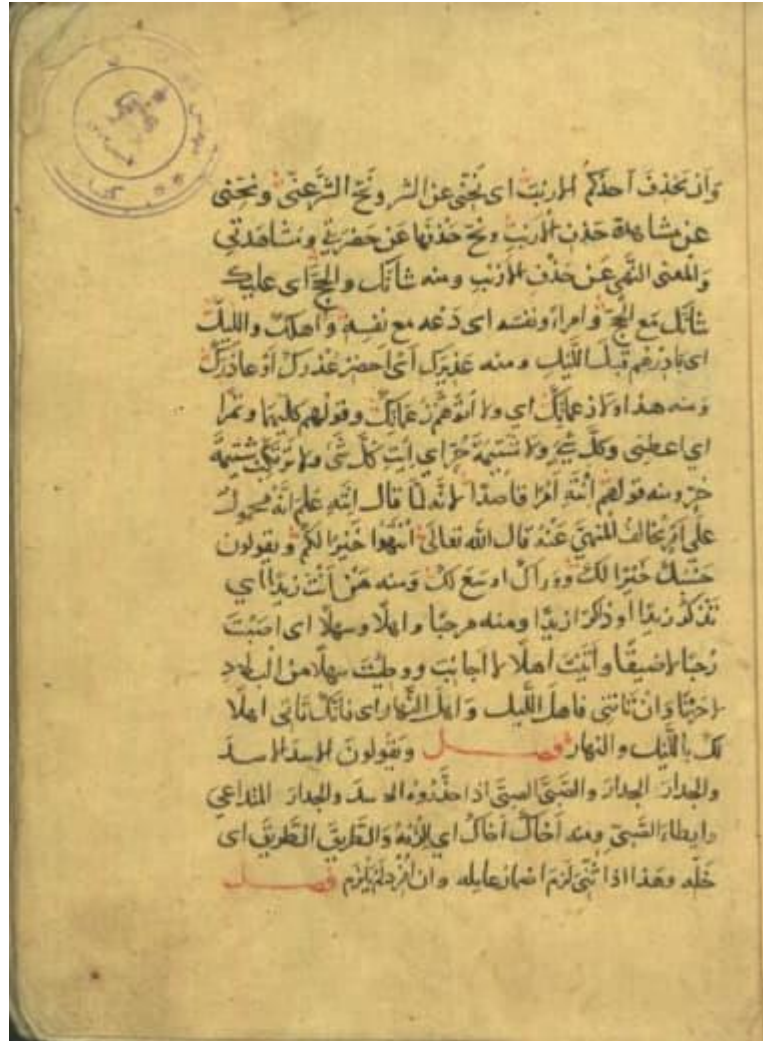 وَاَنْ يَحْذِفَ اَحَدُكُمُ الارْنَبَ اى نَحِّنى عن الشر ونَحِّ الشَّرَّ عَنّى ونحِّنى
عن مشاهدة حَذف الارنب ونَحِّ حَذْفَها عَنْ حَضْرَتى ومُشاهَدَتى
وَالمعنى النَّهى عَنْ حَذْفِ الارْنَبِ ومنه شأنَكَ والحجَّ اى عليك
شأنَك مع الحجّ وامراءً ونفسَه اى دَعْه مع نفسِه وَاهلَكَ والليلَ
اى بَادِرْهُم قَبْلَ اللَّيلِ ومنه عَذيرَك اَىْ اَحضِرْ عُذْرَكَ اوْ عاذِرَكَ
ومنه هذا ولا زَعَماتِكَ اى ولا اَتَوَهَّمُ زَعَماتِكَ وقولهم كِلَيْهِما وتَمْرا
اى اعطنى وكلَّ شَىءٍ ولا شَتِيمَةَ حُرٍّ اى اِئْتِ كُلَّ شَىء ولا تَرْتَكِبْ شَتيمَةَ
حُرّ ومنه قولهم اِنْتَهِ اَمْرًا قاصدًا لانَّه لمّا قال اِنْتَهِ عُلِمَ اَنَّه محمولٌ
عَلَى اَمْرٍ يُخالفُ المنهىَّ عَنْهُ قال الله تعالى انْتَهُوا خَيْرًا لَكُمْ ويقولون
حَسْبُكَ خَيْرًا لَكَ ووراءَك اوسَعَ لَكَ وَمنه مَنْ اَنْتَ زيدًا اى
تَذْكُرُ زيدًا او ذاكرًا زيدًا ومنه مرحبًا واهلًا وسهلًا اى اصَبْتَ
رُحْبًا لا ضيقًا واَتَيْتَ اهلًا لا اَجانِبَ ووَطِئْتَ سهلًا من البلاد
لا حَزْنًا وَانْ تَأتنى فاهلَ اللَّيل وَاهلَ النَّهار اى فانَّك تأتى اهلًا
لَكَ بالليل والنهار فصل ويَقُولونَ الاسدَ الاسدَ
والجدارَ الجدارَ والصَّبىَّ الصبىَّ اذا حذَّرُوه الاسدَ والجدارَ المتداعى
وايطاءَ الصَّبىّ ومنه اَخاكَ اَخاكَ اى اِلْزَمْهُ وَالطَّريقَ الطَّريقَ اى
خَلِّه وهذا اذا ثُنِّىَ لَزِمَ اضمارُ عامِله وان اُفْرِدَ لَمْ يَلْزَم فصل